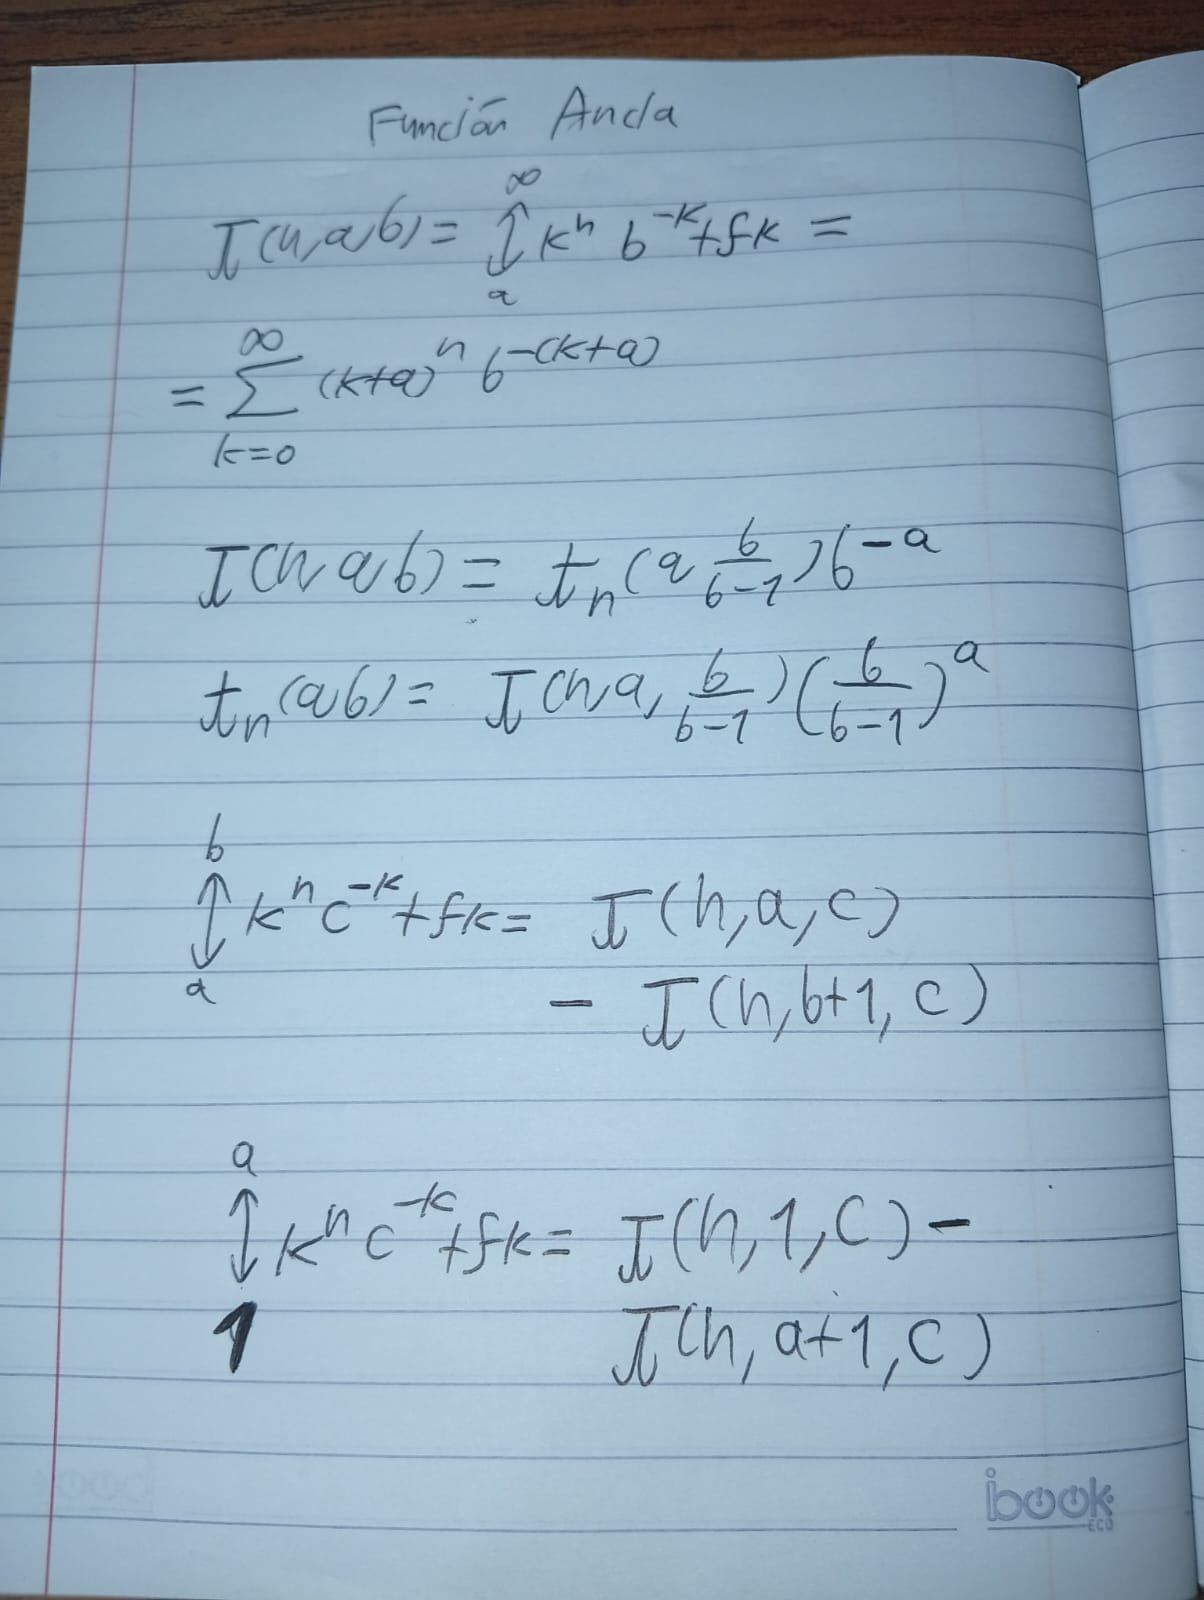 Función Anda
I(n,a,b) = ∞ ↕ a kⁿ b⁻ᵏ +fk =
= ∞ ∑ k=0 (k+a)ⁿ b^-(k+a)
I(n,a,b) = tₙ(a, b/(b-1)) b^-a
tₙ(a,b) = I(n,a, b/(b-1)) (b/(b-1))^a
b ↕ a kⁿ c⁻ᵏ +fk = I(n,a,c)
- I(n,b+1,c)
a ↕ 1 kⁿ c⁻ᵏ +fk = I(n,1,c) -
I(n,a+1,c)
ibook
ECO